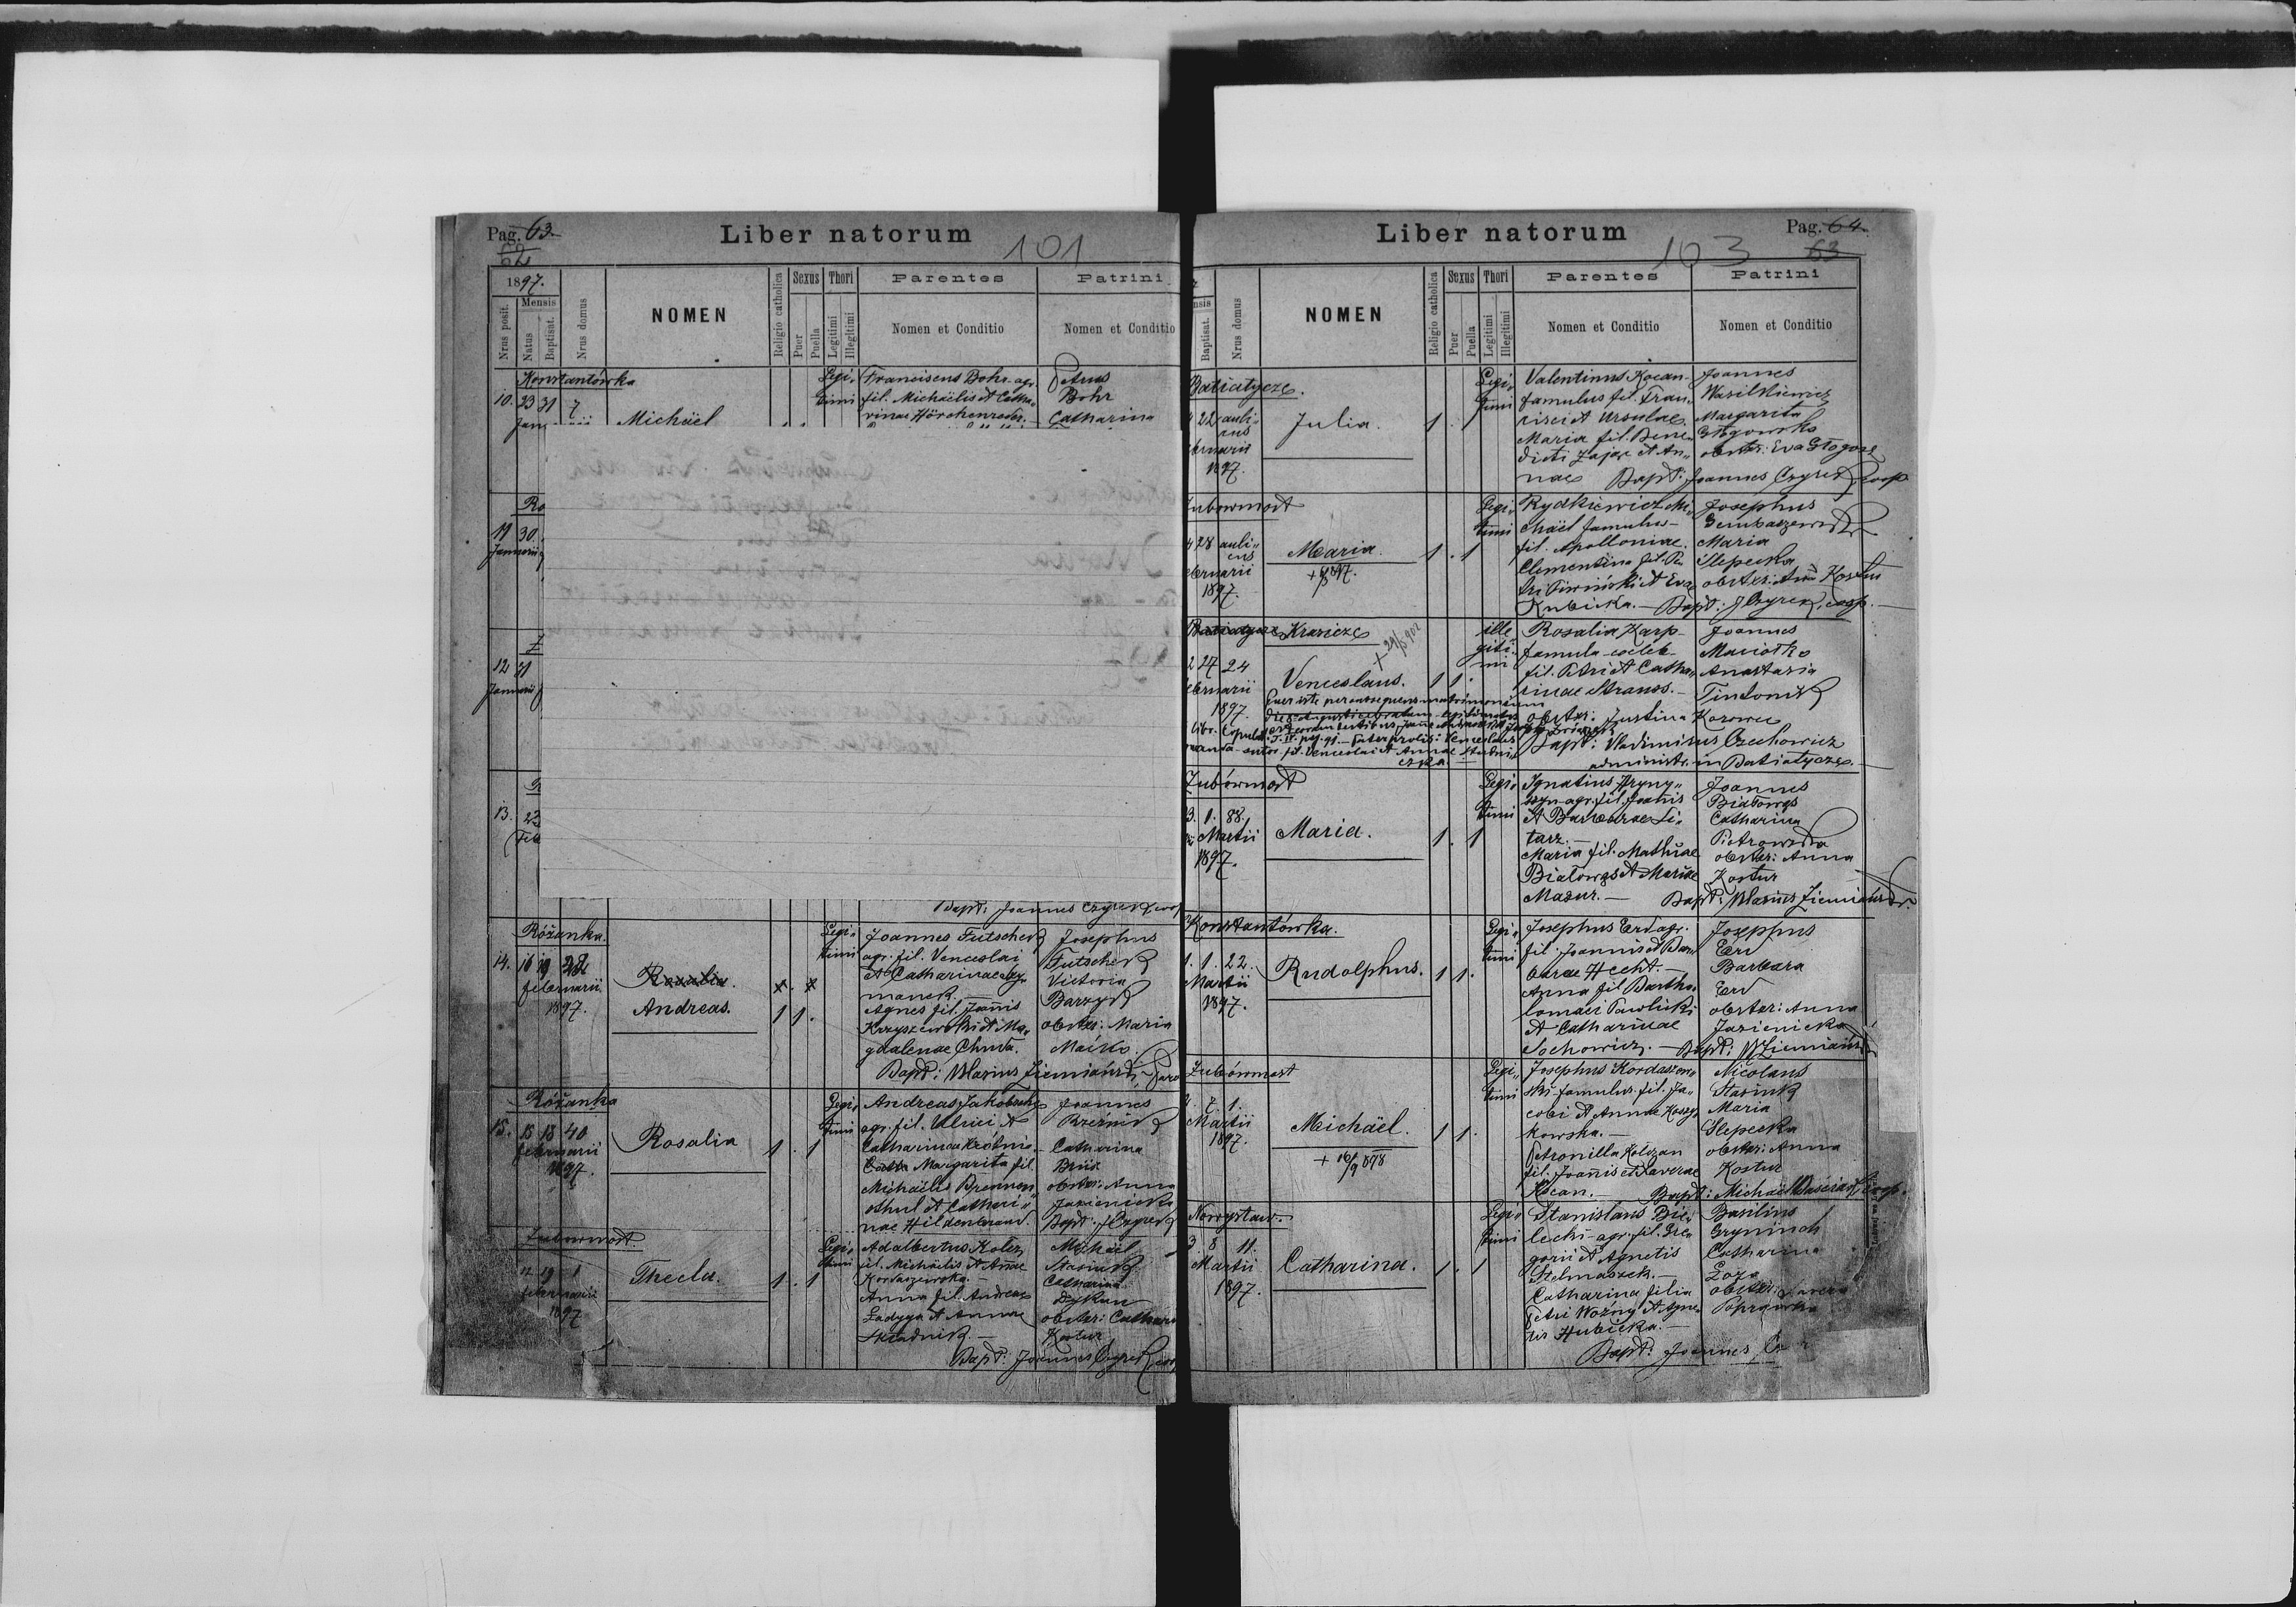 Pag. 63.
62
Liber natorum
101
1897.
Nrus posit.
Mensis
Natus
Baptisat.
Nrus domus
NOMEN
Religio catholica
Sexus
Puer
Puella
Thori
Legitimi
Illegitimi
Parentes
Nomen et Conditio
Patrini
Nomen et Conditio
Konstantówka
10. 23 31 7
Michäel
Legi„
timi
Franciscus Bohr agr.
fil. Michaëlis et Catha„
rinae
Petrus
Bohr
Catharina
Ro
11 30.
Januarii
12 31
Januarii
13. 22
Feb
Bapt: Joannes Czyrek, coop
Różanka.
14. 16 19 28
februarii
1897.
Rosalia.
Andreas.
1 1 .
Legi„
timi
Joannes Futschek
agr. fil. Venceslai
et Catharinae Sy„
manek. —
Agnes fil. Joannis
Krzyszewski et Ma„
gdalenae Chuda.
Josephus
Futschek
Victoria
Barzyk
obstx: Maria
Maćko.
Bapt: Blasius Ziemiański,
Różanka
15. 15 18 40
februarii
1897.
Rosalia
1 . 1
Legi„
timi
Andreas Jakobsche
agr. fil. Ulrici et
Catharinae
Margarita fil.
Michaëlis Brennen„
sthul et Cathari„
nae Hildenbrand.
Joannes
Brzeźnik
Catharina
obstx: Anna
Jazienicka
Bapt. J Czyrek
Zubowmost.
12 19 1
februarii
1897
Thecla.
1 . 1
Legi„
timi
Adalbertus Kolcz
fil. Michäelis et Annae
Kordaszewska. —
Anna fil. Andreae
Ladyga et Annae
Składnik. —
Michäel
Stasiuk
Catharina
Dykun
obstx: Cathari
Kostur
Bapt: Joannes Czyrek, coo
Liber natorum
103
Pag. 64.
63
Baptisat.
Nrus domus
NOMEN
Religio catholica
Sexus
Puer
Puella
Thori
Legitimi
Illegitimi
Parentes
Nomen et Conditio
Patrini
Nomen et Conditio
Batiatycze.
22 auli„
cus
bruarii
1897.
Julia.
1 . 1
Legi„
timi
Valentinus Kocan
famulus fil. Fran„
cisci et Ursulae.
Maria fil. Bene„
dicti Zając et An„
nae
Joannes
Wasilkiewicz
Margarita
Głogowska
obstx: Eva Głogow
Bapt: Joannes Czyrek, coop
Zubowmost
28 auli„
cus
ebruarii
1897.
Maria.
1 . 1
Legi„
timi
Rydkiewicz Mi„
chäel famulus —
fil. Apolloniae.
Clementina fil. Pe
tri Piwiński et Eva
Kubicka. —
Josephus
Maria
Slepecka
obstx: Anna Kostur
Bapt: J Czyrek, coop. —
Batiatycze Krasicze
27 24
ebruarii
1897.
Venceslaus.
+ 29/5 902
1 1 .
ille
giti„
mi
Rosalia Karp
famula caeleb
fil. Petri et Catha„
rinae Strauss. —
Joannes
Maciołko
Anastasia
Tintonik
obstx: Justina Korowec
Puer iste per subsequens matrimonium
Bapt: Vladimirus Czechowicz
administr. in Batiatycze. —
Zubówmost
1. 88.
Martii
1897.
Maria.
1 . 1
Legi„
timi
Ignatius Hryny„
szyn agr. fil. Joannis
et Barbarae Li„
tarz. —
Maria fil. Mathiae
Białowąs et Mariae
Mazur. —
Joannes
Białowąs
Catharina
Pietrowska
obstx: Anna
Kostur
Bapt: Blasius Ziemiański.
Konstantówka.
1. 1. 22.
Martii
1897.
Rudolphus.
1 1 .
Legi„
timi
Josephus Erd agr.
fil. Joannis et Bar„
barae Hecht. —
Anna fil. Bartho„
lomaei Pawlicki
et Catharinae
Sochowicz. —
Josephus
Erd
Barbara
Erd
obstx: Anna
Jazienicka
Bapt: B Ziemiański
Zubówmost
7. 1.
Martii
1897.
Michäel.
+ 16/9 898
1 1 .
Legi„
timi
Josephus Kordaszew„
ski famulus. fil. Ja„
cobi et Annae Koszy„
kowska. —
Petronilla Kolczan
fil. Joannis et Xaverae
Kocan. —
Nicolaus
Stasiuk
Maria
Slepecka
obstx: Anna
Kostur
Bapt: Michäel
Nowystaw.
8 11.
Martii
1897.
Catharina.
1 . 1
Legi„
timi
Stanislaus Bie„
lecki agr. fil. Gre„
gorii et Agnetis
Stelmaszek. —
Catharina filia
Petri Woźny et Agne„
tis Hubicka. —
Basilius
Gryniuch
Catharina
Łoza
obstx:
Bapt: Joannes Cz